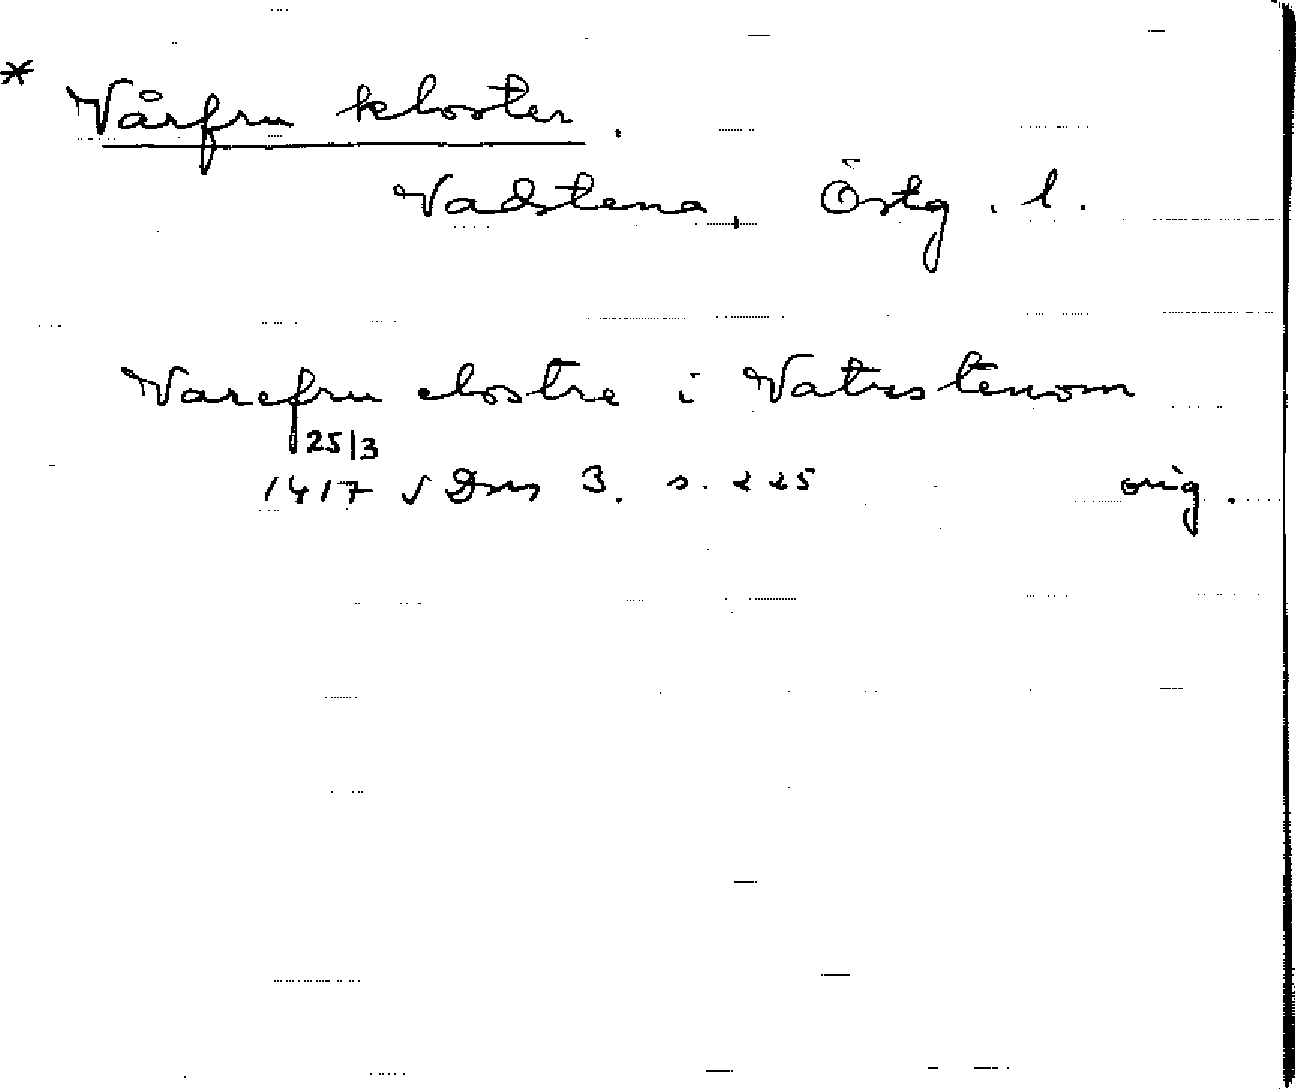 * Vårfru kloster.
Vadstena, Östg. l.
Varefru clostre i Vatzstenom
25/3
1417 √ Dns 3. s. 225 orig.